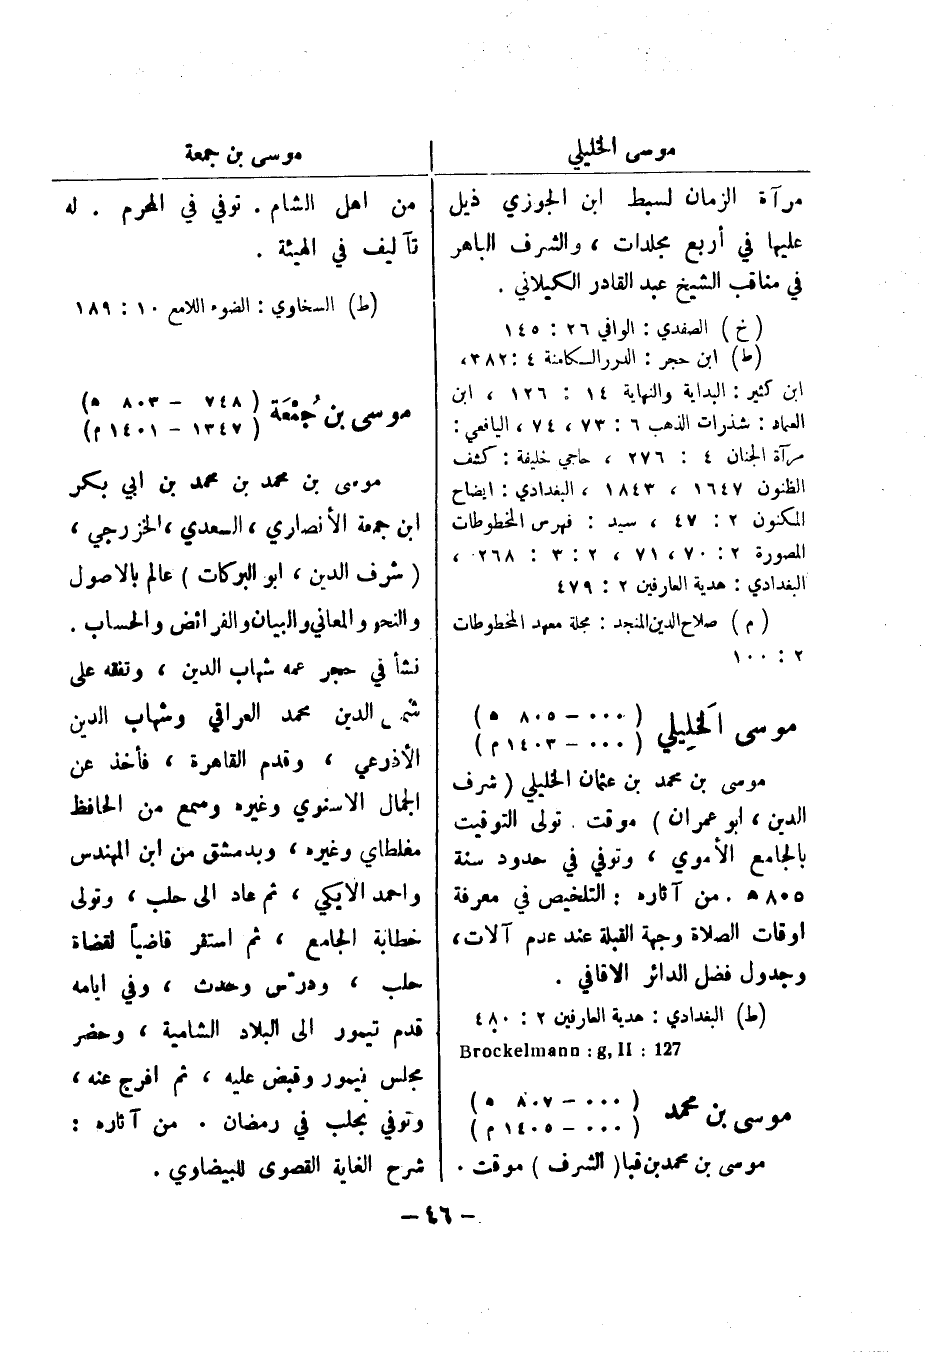 موسى الخليلي
موسى بن جمعة
مرآة الزمان لسبط ابن الجوزي ذيل
عليها في أربع مجلدات ، والشرف الباهر
في مناقب الشيخ عبد القادر الكيلاني .
( خ ) الصفدي : الوافي ٢٦ : ١٤٥
(ط) ابن حجر : الدرر الكامنة ٤ : ٣٨٢،
ابن كثير : البداية والنهاية ١٤ : ١٢٦ ، ابن
العماد : شذرات الذهب ٦ : ٧٣ ، ٧٤ ، اليافعي :
مرآة الجنان ٤ : ٢٧٦ ، حاجي خليفة : كشف
الظنون ١٦٤٧ ، ١٨٤٣ ، البغدادي : ايضاح
المكنون ٢ : ٤٧ ، سيد : فهرس المخطوطات
المصورة ٢ : ٧٠ ، ٧١ ، ٢ : ٣ : ٢٦٨ ،
البغدادي : هدية العارفين ٢ : ٤٧٩
( م ) صلاح الدين المنجد : مجلة معهد المخطوطات
٢ : ١٠٠
موسى الخَلِيلي ( ٠٠٠ – ٨٠٥ ه )
( ٠٠٠ – ١٤٠٣ م )
موسى بن محمد بن عثمان الخليلي ( شرف
الدين ، ابو عمران ) موقت . تولى التوقيت
بالجامع الأموي ، وتوفي في حدود سنة
٨٠٥ ه . من آثاره : التلخيص في معرفة
اوقات الصلاة وجهة القبلة عند عدم آلات،
وجدول فضل الدائر الافاقي .
(ط) البغدادي : هدية العارفين ٢ : ٤٨٠
Brockelmann : g, II : 127
موسى بن محمد ( ٠٠٠ – ٨٠٧ ه )
( ٠٠٠ – ١٤٠٥ م )
موسى بن محمد بن قبا ( الشرف ) موقت .
من اهل الشام . توفي في المحرم . له
تآليف في الهيئة .
(ط) السخاوي : الضوء اللامع ١٠ : ١٨٩
موسى بن جُمْعَة ( ٧٤٨ – ٨٠٣ ه )
( ١٣٤٧ – ١٤٠١ م )
موسى بن محمد بن محمد بن ابي بكر
ابن جمعة الأنصاري ، السعدي ، الخزرجي ،
( شرف الدين ، ابو البركات ) عالم بالاصول
والنحو والمعاني والبيان والفرائض والحساب .
نشأ في حجر عمه شهاب الدين ، وتفقه على
شمس الدين محمد العراقي وشهاب الدين
الأذرعي ، وقدم القاهرة ، فأخذ عن
الجمال الاسنوي وغيره وسمع من الحافظ
مغلطاي وغيره ، وبدمشق من ابن المهندس
واحمد الايكي ، ثم عاد الى حلب ، وتولى
خطابة الجامع ، ثم استقر قاضياً لقضاة
حلب ، ودرّس وحدث ، وفي ايامه
قدم تيمور الى البلاد الشامية ، وحضر
مجلس تيمور وقبض عليه ، ثم افرج عنه ،
وتوفي بحلب في رمضان . من آثاره :
شرح الغاية القصوى للبيضاوي .
– ٤٦ –